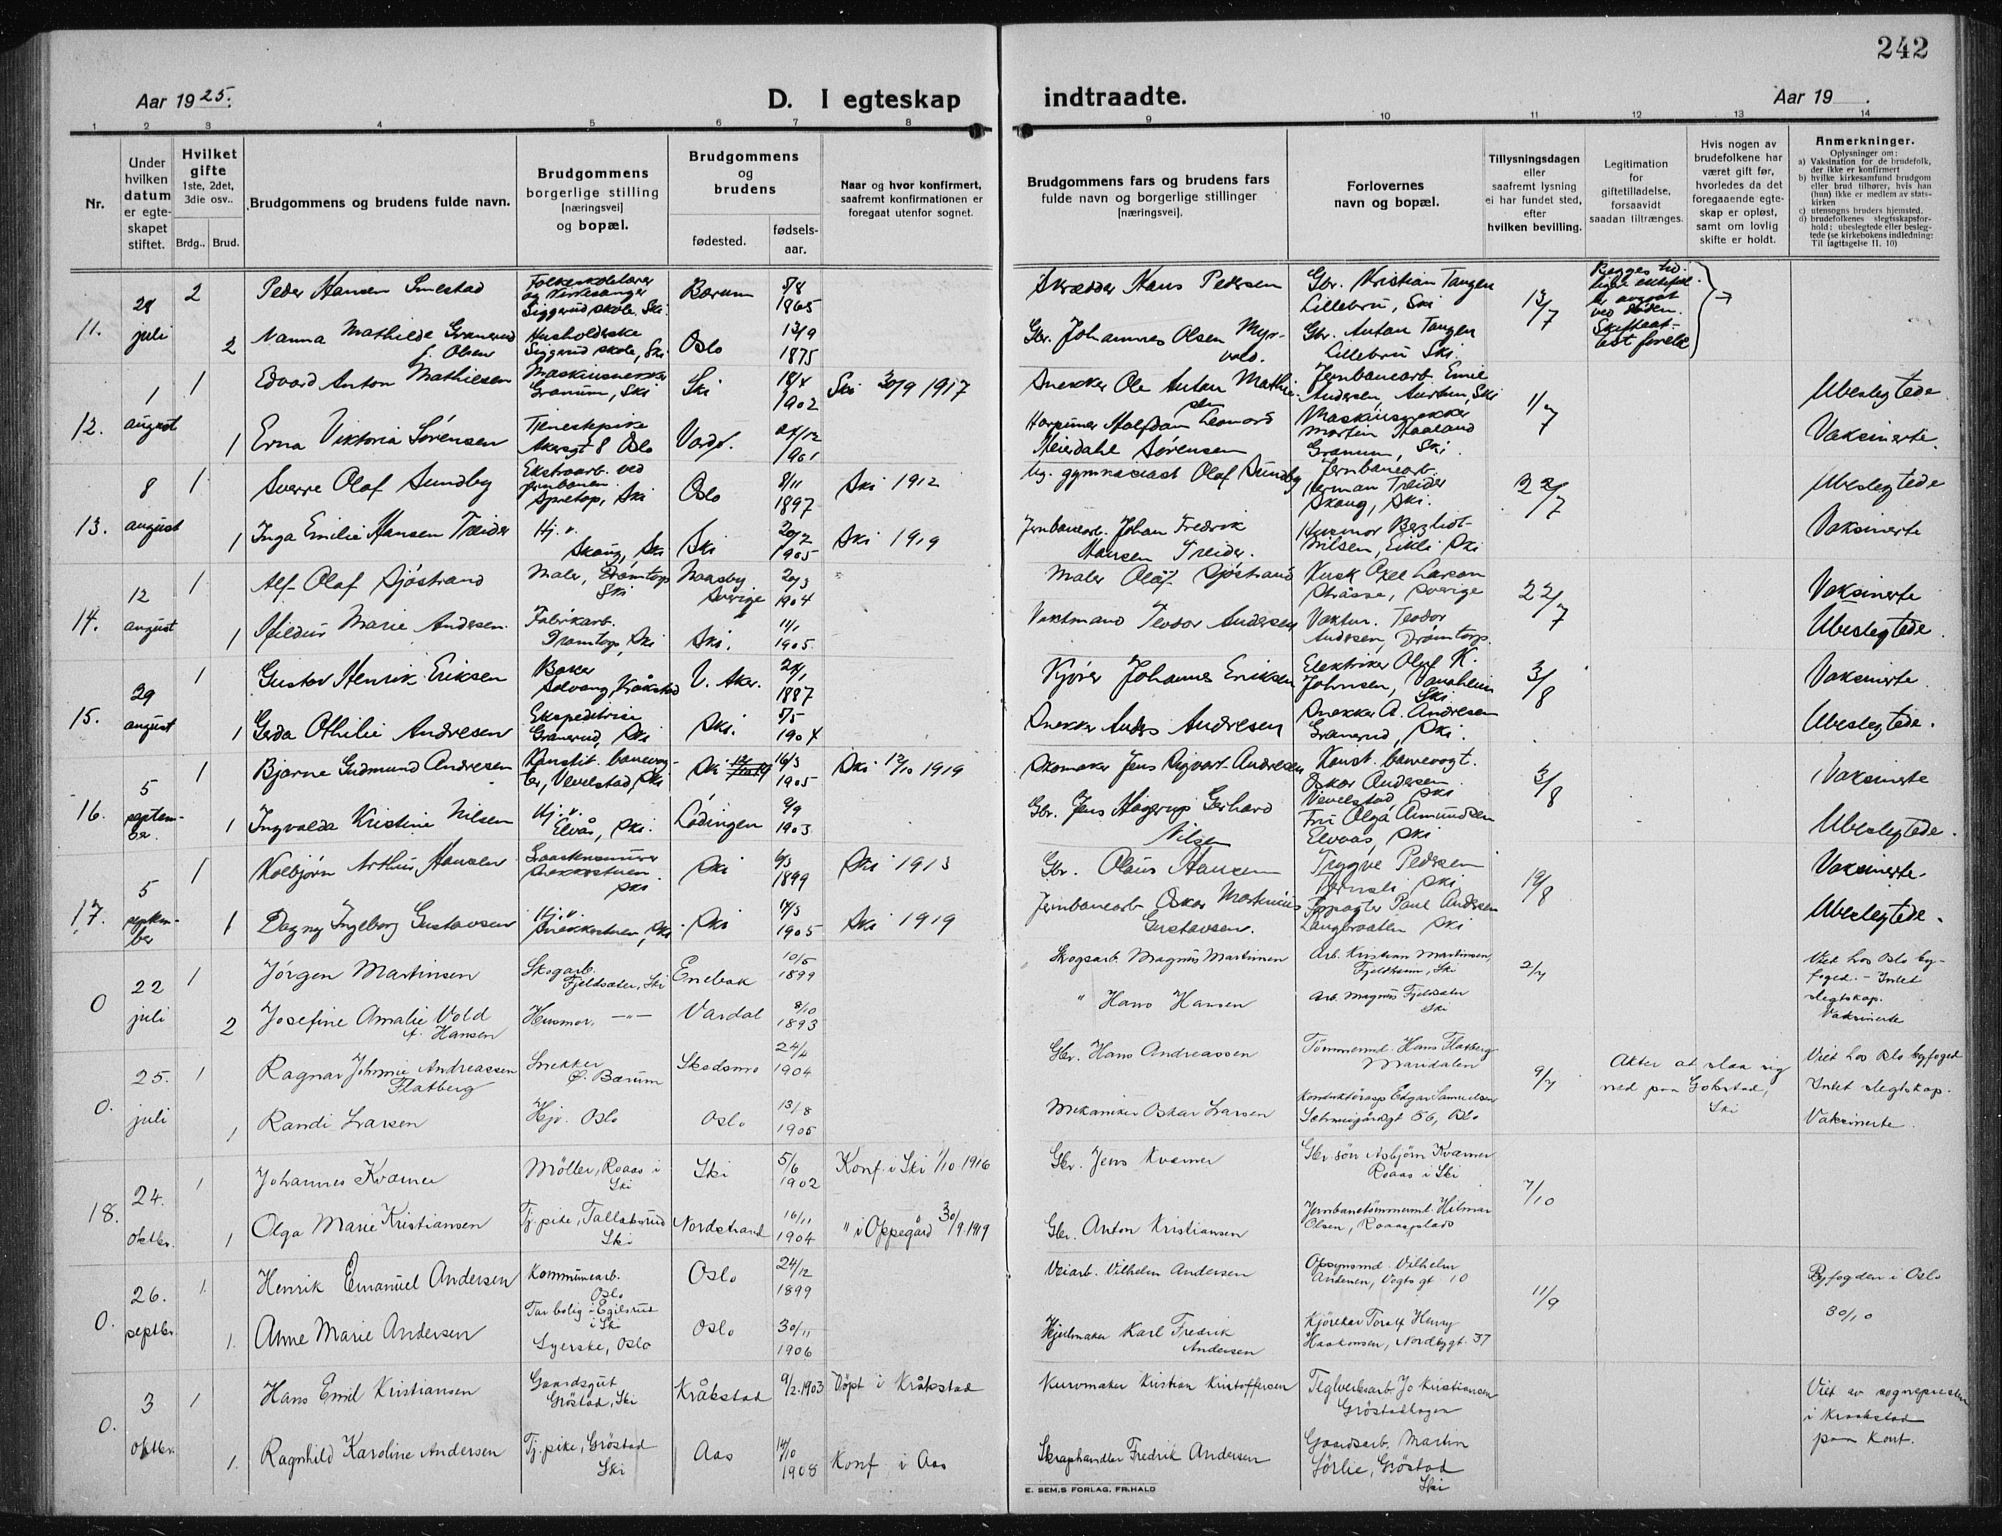 242
Aar 1925.
D. I egteskap indtraadte.
Aar 19
1 2 3 4 5 6 7 8 9 10 11 12 13 14
Nr.
Under hvilken datum er egteskapet stiftet.
Hvilket gifte
1ste, 2det, 3die osv..
Brdg.. Brud.
Brudgommens og brudens fulde navn.
Brudgommens borgerlige stilling [næringsvei] og bopæl.
Brudgommens og brudens
fødested.
fødselsaar.
Naar og hvor konfirmert, saafremt konfirmationen er foregaat utenfor sognet.
Brudgommens fars og brudens fars fulde navn og borgerlige stillinger [næringsvei].
Forlovernes navn og bopæl.
Tillysningsdagen eller saafremt lysning ei har fundet sted, efter hvilken bevilling.
Legitimation for giftetilladelse, forsaavidt saadan tiltrænges.
Hvis nogen av brudefolkene har været gift før, hvorledes da det foregaaende egteskap er opløst, samt om lovlig skifte er holdt.
Anmerkninger.
Oplysninger om:
a) Vaksination for de brudefolk, der ikke er konfirmert
b) hvilke kirkesamfund brudgom eller brud tilhører, hvis han (hun) ikke er medlem av statskirken
c) utensogns bruders hjemsted.
d) brudefolkenes slegtsskapsforhold: ubeslegtede eller beslegtede (se kirkebokens indledning: Til iagttagelse II. 10)
11. 28 juli 2 Peder Hansen Smestad Folkeskolelærer og Kirkesanger Siggerud skole, Ski Bærum 5/8 1865 Skrædder Hans Pedersen Gbr. Kristian Tangen Lillebru, Ski 13/7
2 Nanna Mathilde Granerud f. Olsen Husholderske Siggerud skole, Ski Oslo 13/9 1875 Gbr. Johannes Olsen Myrvold. Gbr. Anton Tangen Lillebru Ski.
12. 1 august 1 Edvard Anton Mathiesen Maskinsnekker Granum, Ski Ski 18/4 1902 Ski 30/9 1917 Snekker Ole Anton Mathisen Jernbanearb. Emil Andersen, Ski 1/7 Ubeslegtede.
1 Erna Viktoria Sørensen Tjenestepike Akersgt 8 Oslo Vadsø. 1901 Halfdan Leonard Meierdahl Sørensen Maskinsnekker Martin Kaaland Granum, Ski. Vaksinerte.
13. 8 august 1 Sverre Olaf Sundby Ekstraarb. ved jernbanen. Ski Oslo 8/11 1897 Ski 1912 Ug. gymnasiast Olaf Sundby Jernbanearb. Herman Treider Skaug, Ski. 22/7 Ubeslegtede
1 Inga Emilie Hansen Treider Hj.v. Skaug, Ski Ski 20/2 1905 Ski 1919 Jernbanearb. Johan Fredrik Hansen Treider. Husmor Bergliot Nilsen, Eikli Ski Vaksinerte
14. 12 august 1 Alf Olaf Sjöstrand Maler, Dramtop Ski Sverige 20/3 1904 Maler Olaf Sjöstrand Kusk Axel Larson Sverige 22/7 Vaksinerte
1 Hildur Marie Andersen. Fabrikarb. Dramtop, Ski Ski. 1905. Vaktmand Teodor Andersen Vaktm. Teodor Andersen, Drømtorp. Ubeslegtede.
15. 29 august 1 Gustav Henrik Eriksen Baker Solvang, Kråkstad V. Aker. 1887 Kjører Johannes Eriksen Elektriker Olaf K. Johnsen, Vanaheim Ski 3/8 Vaksinerte.
1 Gerda Othilie Andresen Ekspeditrise Granerud, Ski Ski. 5/5 1904 Snekker Anders Andresen Snekker A. Andresen Granerud, Ski. Ubeslegtede.
16. 5 september. 1 Bjarne Gudmund Andresen Konstit. banevogter, Vevelstad, Ski Ski 16/3 1905 Ski 12/10 1919 Skomaker Jens Sigvart Andresen Konst. banevogt. Oskar Andersen Vevelstad, Ski 3/8 Vaksinerte
1 Ingvalda Kristine Nilsen Hj.v. Elvås, Ski. Lødingen 9/9 1903 Gbr. Jens Hagerup Gerhard Nilsen Fru Olga Amundsen Elvaas, Ski Ubeslegtede.
17. 5 september 1 Kolbjørn Arthur Hansen Ski Ski 6/3 1899 Ski 1913 Gbr. Olaus Hansen Trygve Pedersen Ski 19/8 Vaksinerte.
1 Dagny Ingeborg Gustavsen Hj.v. Ski Ski 1905 Ski 1919 Jernbanearb Oskar Martinius Gustavsen. Paul Andersen Langbraaten Ski Ubeslegtede.
0 22 juli 1 Jørgen Martinsen Skogarb. Fjeldsæter, Ski Enebak 10/5 1899 Skogsarb. Magnus Martinsen Arb. Kristian Martinsen, Fjeldheim, Ski 2/7 Viet hos Oslo byfoged. - Intet slegtskap. Vaksinerte
2 Josefine Amalie Vold f. Hansen Husmor. —"— Vardal 8/10 1893 " Hans Hansen Arb. Magnus Fjeldsæter Ski
0. 25. juli 1 Ragnar Johnnie Andreassen Flatberg Snekker Ø. Bærum Skedsmo 24/4 1904 Gbr. Hans Andreassen Tömmermd. Hans Flatberg Maridalen 9/7 Akter at slaa sig ned paa Gobstad, Ski Viet hos Oslo byfoged Intet slegtskap.
1 Randi Larsen Hjv. Oslo Oslo 13/8 1905 Mekaniker Oskar Larsen Konduktörasp Edgar Samuelsen Schweigårdsgt 56, Oslo Vaksinerte.
18. 24. oktbr. 1 Johannes Kværner Møller, Roaas i Ski Ski 5/6 1902 Konf. i Ski 1/10 1916 Gbr. Jens Kværner Gbr. sön Asbjörn Kværner Roaas i Ski 7/10
1 Olga Marie Kristiansen Tj. pike, Tallaksrud Ski Nordstrand 16/11 1904 " i Oppegård 30/9 1919 Gbr. Anton Kristiansen Jernbanetömmermd. Hilmar Olsen, Roaasplads
0. 26. septbr. 1. Henrik Emanuel Andersen Kommunearb. Oslo Tar bolig i Egilsrud i Ski Oslo 24/12 1899 Veiarb. Vilhelm Andersen Opsynsmd. Vilhelm Andersen, Vogts gt 10 11/9 Byfogden i Oslo 30/10
1. Anne Marie Andersen Syerske, Oslo Oslo 30/11 1906 Karl Fredrik Andersen Kjörekar Toralf Henry Haakonsen, Nordbygt. 37
0. 3 oktbr. 1 Hans Emil Kristiansen Gaardsgut Gröstad, Ski Kråkstad 9/2.1903 Döpt i Kråkstad Kurvmaker Kristian Kristoffersen Teglverksarb Jo Kristiansen Gröstadhagen Viet av sognepresten i Kraakstad paa Kont.
1. Ragnhild Karoline Andersen Tj. pike, Gröstad Ski Aas 14/10 1908 Konf i Aas Skraphandler Fredrik Andersen Gaardsarb. Martin Sörlie, Gröstad Ski
E. SEM.S FORLAG, FR.HALD